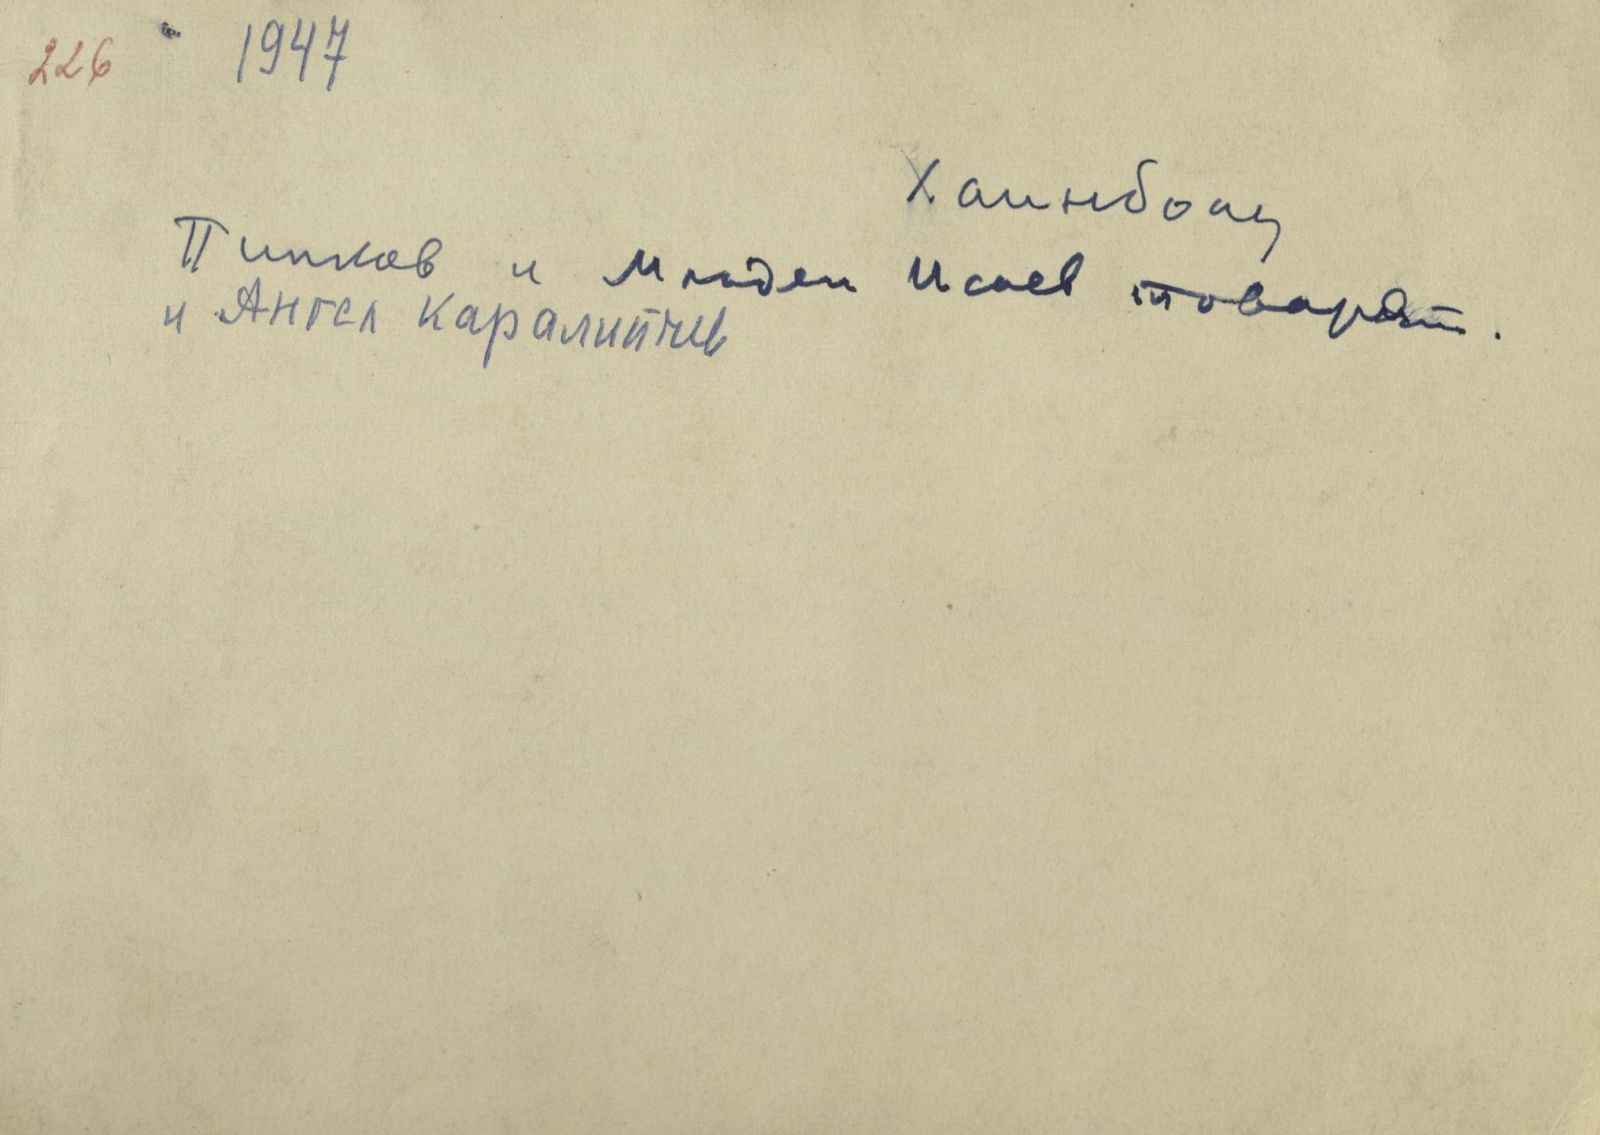 226 1947
Хаинбоаз
Пипков и Младен Исаев товарят.
и Ангел Каралийчев